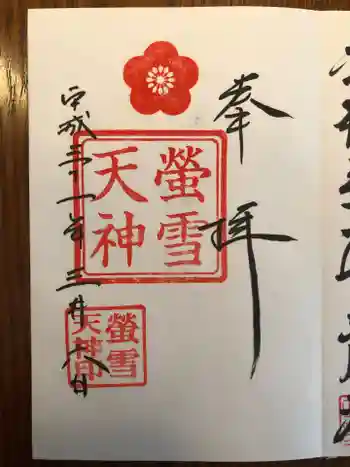 奉拝
螢雪
天神
螢雪
天神印
平成三十一年三月廿八日